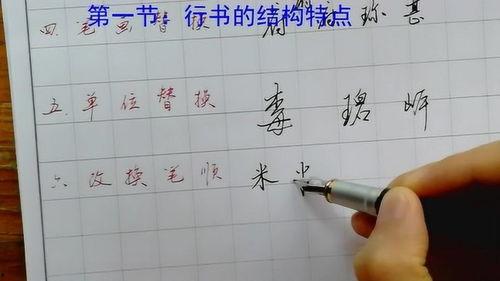 第一节、行书的结构特点
四.笔画替换 珍 甚
五.单位替换 毒
六.改换笔顺 米